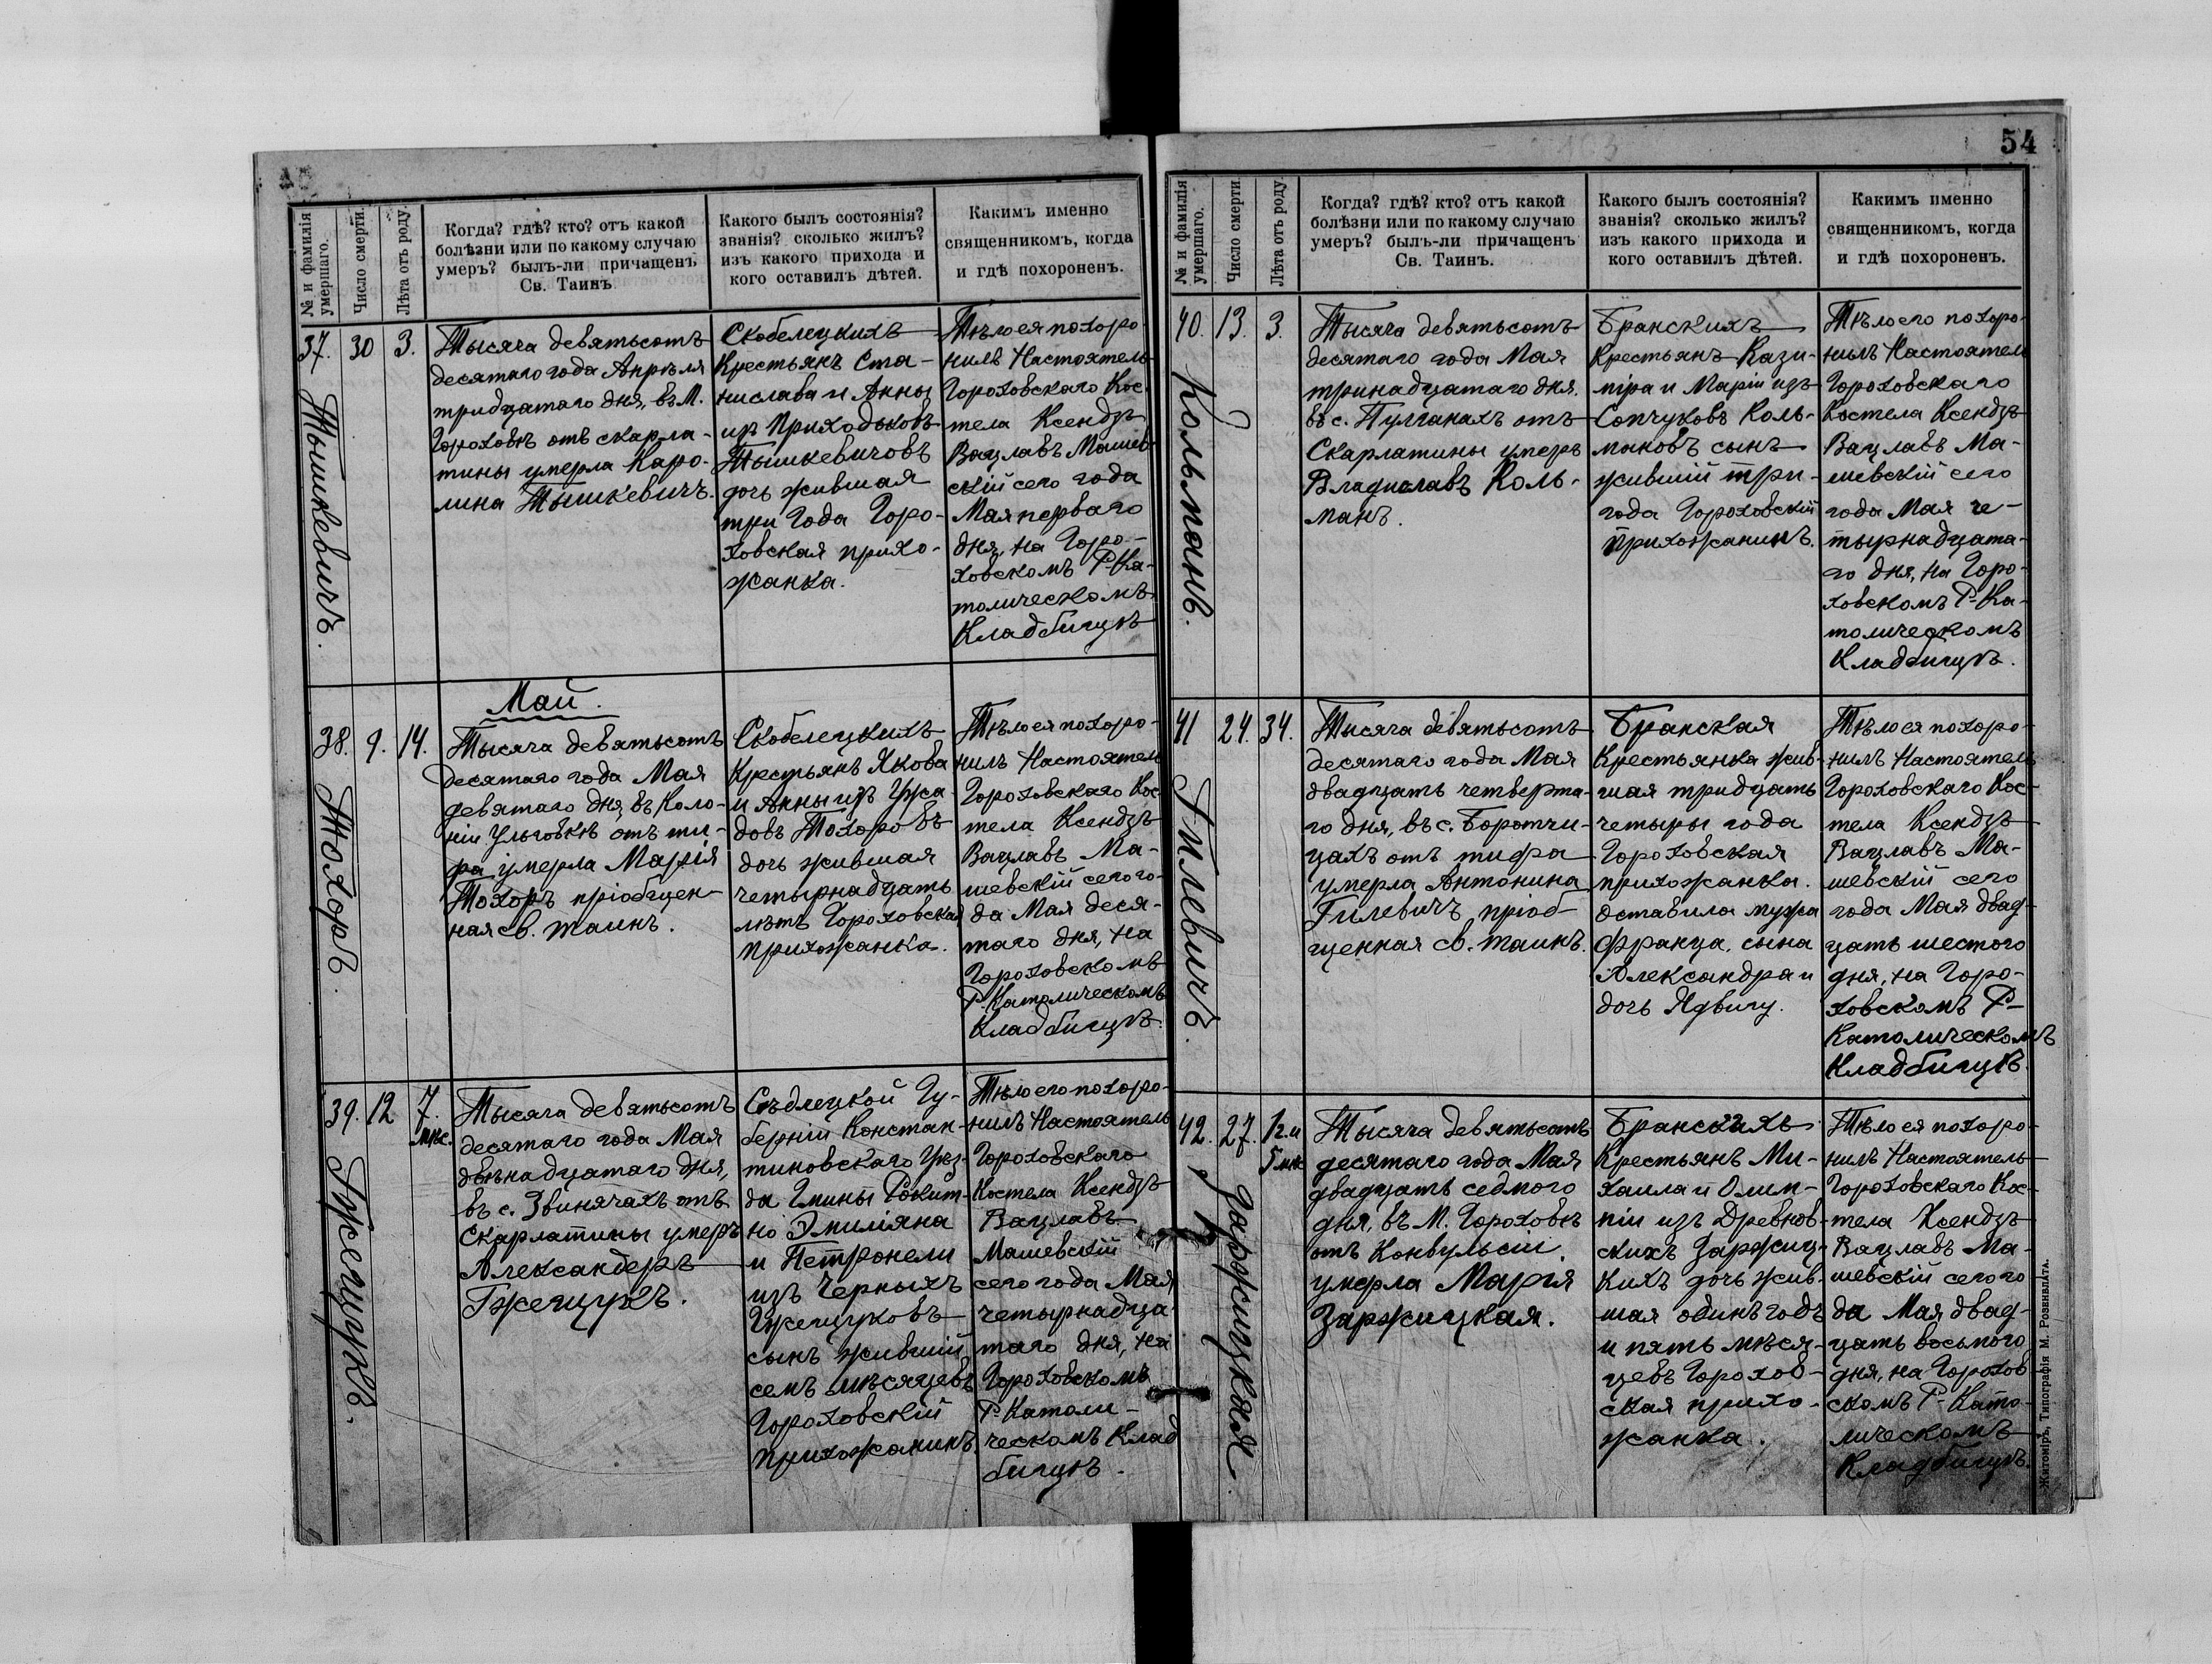 54
№ и фамилія умершаго.
Число смерти.
Лѣта отъ роду.
Когда? гдѣ? кто? отъ какой
болѣзни или по какому случаю
умеръ? былъ-ли причащенъ
Св. Таинъ
Какого былъ состоянія?
званія? сколько жилъ?
изъ какого прихода и
кого оставилъ дѣтей.
Какимъ именно
священникомъ, когда
и гдѣ похороненъ.
37.
Тышкевичъ.
30
3.
Тысяча девятьсотъ
десятаго года Апрѣля
тридцатаго дня, въ М.
Гороховѣ отъ скарла-
тины умерла Каро-
лина Тышкевичъ.
Скобелецкихъ
Крестьянъ Ста-
нислава и Анны
изъ Приходьковъ
Тышкевичовъ
дочь жившая
три года Горо-
ховская прихо-
жанка.
Тѣло ея похоро-
нилъ Настоятель
Гороховскаго Кос-
тела Ксендзъ
Вацлавъ Машев-
скій сего года
Мая перваго
дня, на Горо-
ховскомъ Р-Ка-
толическомъ
Кладбищѣ
Май.
38.
Тохоръ.
9.
14.
Тысяча девятьсотъ
десятаго года Мая
девятаго дня, въ Коло-
ніи Ульговкѣ отъ ти-
фа умерла Марія
Тохоръ пріобщен-
ная св. таинъ.
Скобелецкихъ
Крестьянъ Якова
и Анны изъ Гуса-
довъ Тохоровъ
дочь жившая
четырнадцать
лѣтъ Гороховская
прихожанка.
Тѣло ея похоро-
нилъ Настоятель
Гороховскаго Кос-
тела Ксендзъ
Вацлавъ Ма-
шевскій сего го-
да Мая деся-
таго дня, на
Гороховскомъ
Р-Католическомъ
Кладбищѣ.
39.
Гжещукъ.
12
7.
мѣс.
Тысяча девятьсотъ
десятаго года Мая
двѣнадцатаго дня,
въ с. Звинячахъ отъ
Скарлатины умеръ
Александеръ
Гжещукъ.
Сѣдлецкой Гу-
берніи Констан-
тиновскаго Уѣз-
да Гмины Рокит-
но Эмиліяна
и Петронели
изъ Черныхъ
Гжещуковъ
сынъ жившій
семь мѣсяцевъ
Гороховскій
прихожанинъ.
Тѣло его похоро-
нилъ Настоятель
Гороховскаго
Костела Ксендзъ
Вацлавъ
Машевскій
сего года Мая
четырнадца-
таго дня, на
Гороховскомъ
Р-Католи-
ческомъ Клад
бищѣ.
№ и фамилія умершаго.
Число смерти.
Лѣта отъ роду.
Когда? гдѣ? кто? отъ какой
болѣзни или по какому случаю
умеръ? былъ-ли причащенъ
Св. Таинъ.
Какого былъ состоянія?
званія? сколько жилъ?
изъ какого прихода и
кого оставилъ дѣтей.
Какимъ именно
священникомъ, когда
и гдѣ похороненъ.
40.
Кольманъ.
13.
3.
Тысяча девятьсотъ
десятаго года Мая
тринадцатаго дня.
въ с. Пулганахъ отъ
Скарлатины умеръ
Владиславъ Коль-
манъ.
Бранскихъ
Крестьянъ Кази-
міра и Маріи изъ
Сопчуковъ Коль-
мановъ сынъ
жившій три
года Гороховскій
прихожанинъ.
Тѣло его похоро-
нилъ Настоятель
Гороховскаго
Костела Ксендзъ
Вацлавъ Ма-
шевскій сего
года Мая че-
тырнадцата-
го дня, на Горо-
ховскомъ Р-Ка-
толическомъ
Кладбищѣ.
41
Гилевичъ.
24.
34.
Тысяча девятьсотъ
десятаго года Мая
двадцать четверта-
го дня, въ с. Боротчи-
цахъ отъ тифа
умерла Антонина
Гилевичъ пріоб-
щенная св. таинъ.
Бранская
Крестьянка жив-
шая тридцать
четыры года
Гороховская
прихожанка.
оставила мужа
Франца, сына
Александра и
дочь Ядвигу.
Тѣло ея похоро-
нилъ Настоятель
Гороховскаго Кос-
тела Ксендзъ
Вацлавъ Ма-
шевскій сего
года Мая двад-
цать шестого
дня, на Горо-
ховскомъ Р-
Католическомъ
Кладбищѣ.
42.
Заржицкая
27.
1 г. и
5 мѣс
Тысяча девятьсотъ
десятаго года Мая
двадцать седмого
дня, въ М. Гороховѣ
отъ Конвульсіи
умерла Марія
Заржицкая.
Бранскихъ
Крестьянъ Ми-
хаила и Олим-
піи изъ Древнов-
скихъ Заржиц-
кихъ дочь жив-
шая одинъ годъ
и пять мѣся-
цевъ Горохов-
ская прихо-
жанка.
Тѣло ея похоро-
нилъ Настоятель
Гороховскаго Кос-
тела Ксендзъ
Вацлавъ Ма-
шевскій сего го
да Мая двад-
цать восьмого
дня, на Горохов
скомъ Р-Като-
лическомъ
Кладбищѣ.
Житоміръ, Типографія М. Розенблата.